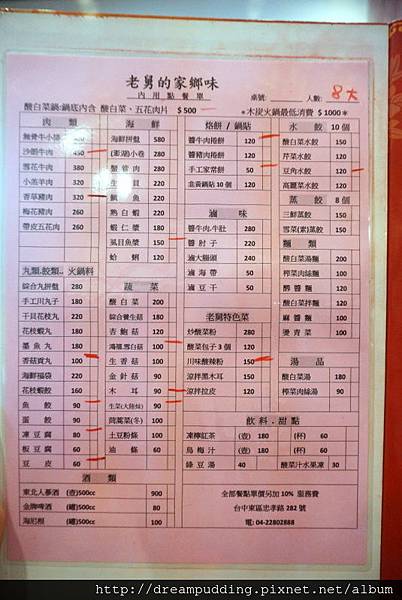 老舅的家鄉味
內用點餐單
桌號: 人數: 8大
酸白菜鍋:鍋底內含 酸白菜、五花肉片 $500
*木炭火鍋最低消費 $1000*
肉 類
無骨牛小排
沙朗牛肉 450
雪花牛肉 380
小羔羊肉 320
香草豬肉 320
梅花豬肉 260
帶皮五花肉 260
丸類.餃類.火鍋料
綜合九拼盤 280
手工川丸子 180
干貝花枝丸 220
花枝蝦丸 180
墨魚丸 180
香菇貢丸 100
海鮮福袋 220
花枝蝦餃 160
魚 餃 90
蛋 餃 90
凍豆腐 80
板豆腐 60
豆 皮 60
海 鮮
海鮮拼盤 580
(澎湖)小卷 280
蟹管肉 280
生 蚵 220
鯛 魚 220
熟白蝦 220
蝦仁漿 180
虱目魚漿 150
蛤 蜊 120
蔬 菜
酸白菜 200
綜合養生菇 180
青鮑菇 120
鴻禧.雪白菇 100
生香菇 100
金針菇 90
木 耳 90
生菜(大陸妹) 90
茼蒿菜(冬) 100
土豆粉條 100
油 條 60
烙餅 / 鍋貼
醬牛肉捲餅 120
醬豬肉捲餅 120
手工家常餅 50
韭黃鍋貼10個 120
滷 味
醬牛肉.牛肚 280
醬肘子 220
滷大腸頭 240
滷海帶 50
滷豆干 50
老舅特色菜
炒酸菜粉 280
酸菜包子3個 120
川味酸辣粉 150
涼拌黑木耳 150
涼拌拉皮 120
水 餃 10個
酸白菜水餃 120
芹菜水餃 120
豆角水餃 120
高麗菜水餃 120
蒸 餃 8個
三鮮蒸餃 150
雪菜(素)蒸餃 150
麵 類
酸白菜湯麵 200
榨菜肉絲麵 100
酢醬麵 100
酸白菜拌麵 120
麻醬麵 100
燙青菜 100
湯 品
酸白菜湯 180
榨菜肉絲湯 90
飲料.甜點
凍檸紅茶 (壺) 180 (杯) 60
烏梅汁 (壺) 180 (杯) 60
綠豆湯 40 酸菜汁水果凍 30
酒 類
東北人蔘酒 (壺)500cc 900
金牌啤酒 (罐)500cc 80
海尼根 (罐)500cc 100
全部餐點單價另加10% 服務費
台中東區忠孝路 282 號
電: 04-22802888
http://dreampudding.pixnet.net/album